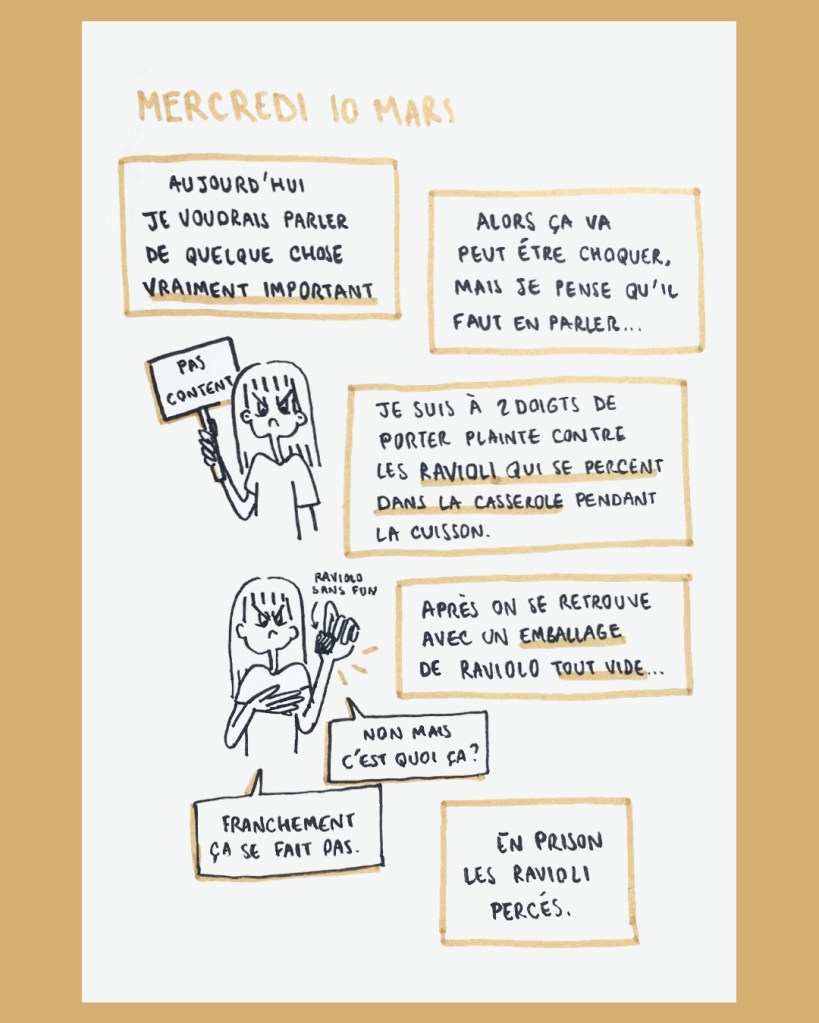 MERCREDI 10 MARS
AUJOURD'HUI
JE VOUDRAIS PARLER
DE QUELQUE CHOSE
VRAIMENT IMPORTANT
ALORS ÇA VA
PEUT ÊTRE CHOQUER,
MAIS JE PENSE QU'IL
FAUT EN PARLER...
PAS
CONTENT
JE SUIS À 2 DOIGTS DE
PORTER PLAINTE CONTRE
LES RAVIOLI QUI SE PERCENT
DANS LA CASSEROLE PENDANT
LA CUISSON.
RAVIOLO
SANS FUN
APRÈS ON SE RETROUVE
AVEC UN EMBALLAGE
DE RAVIOLO TOUT VIDE...
NON MAIS
C'EST QUOI ÇA?
FRANCHEMENT
ÇA SE FAIT PAS.
EN PRISON
LES RAVIOLI
PERCÉS.